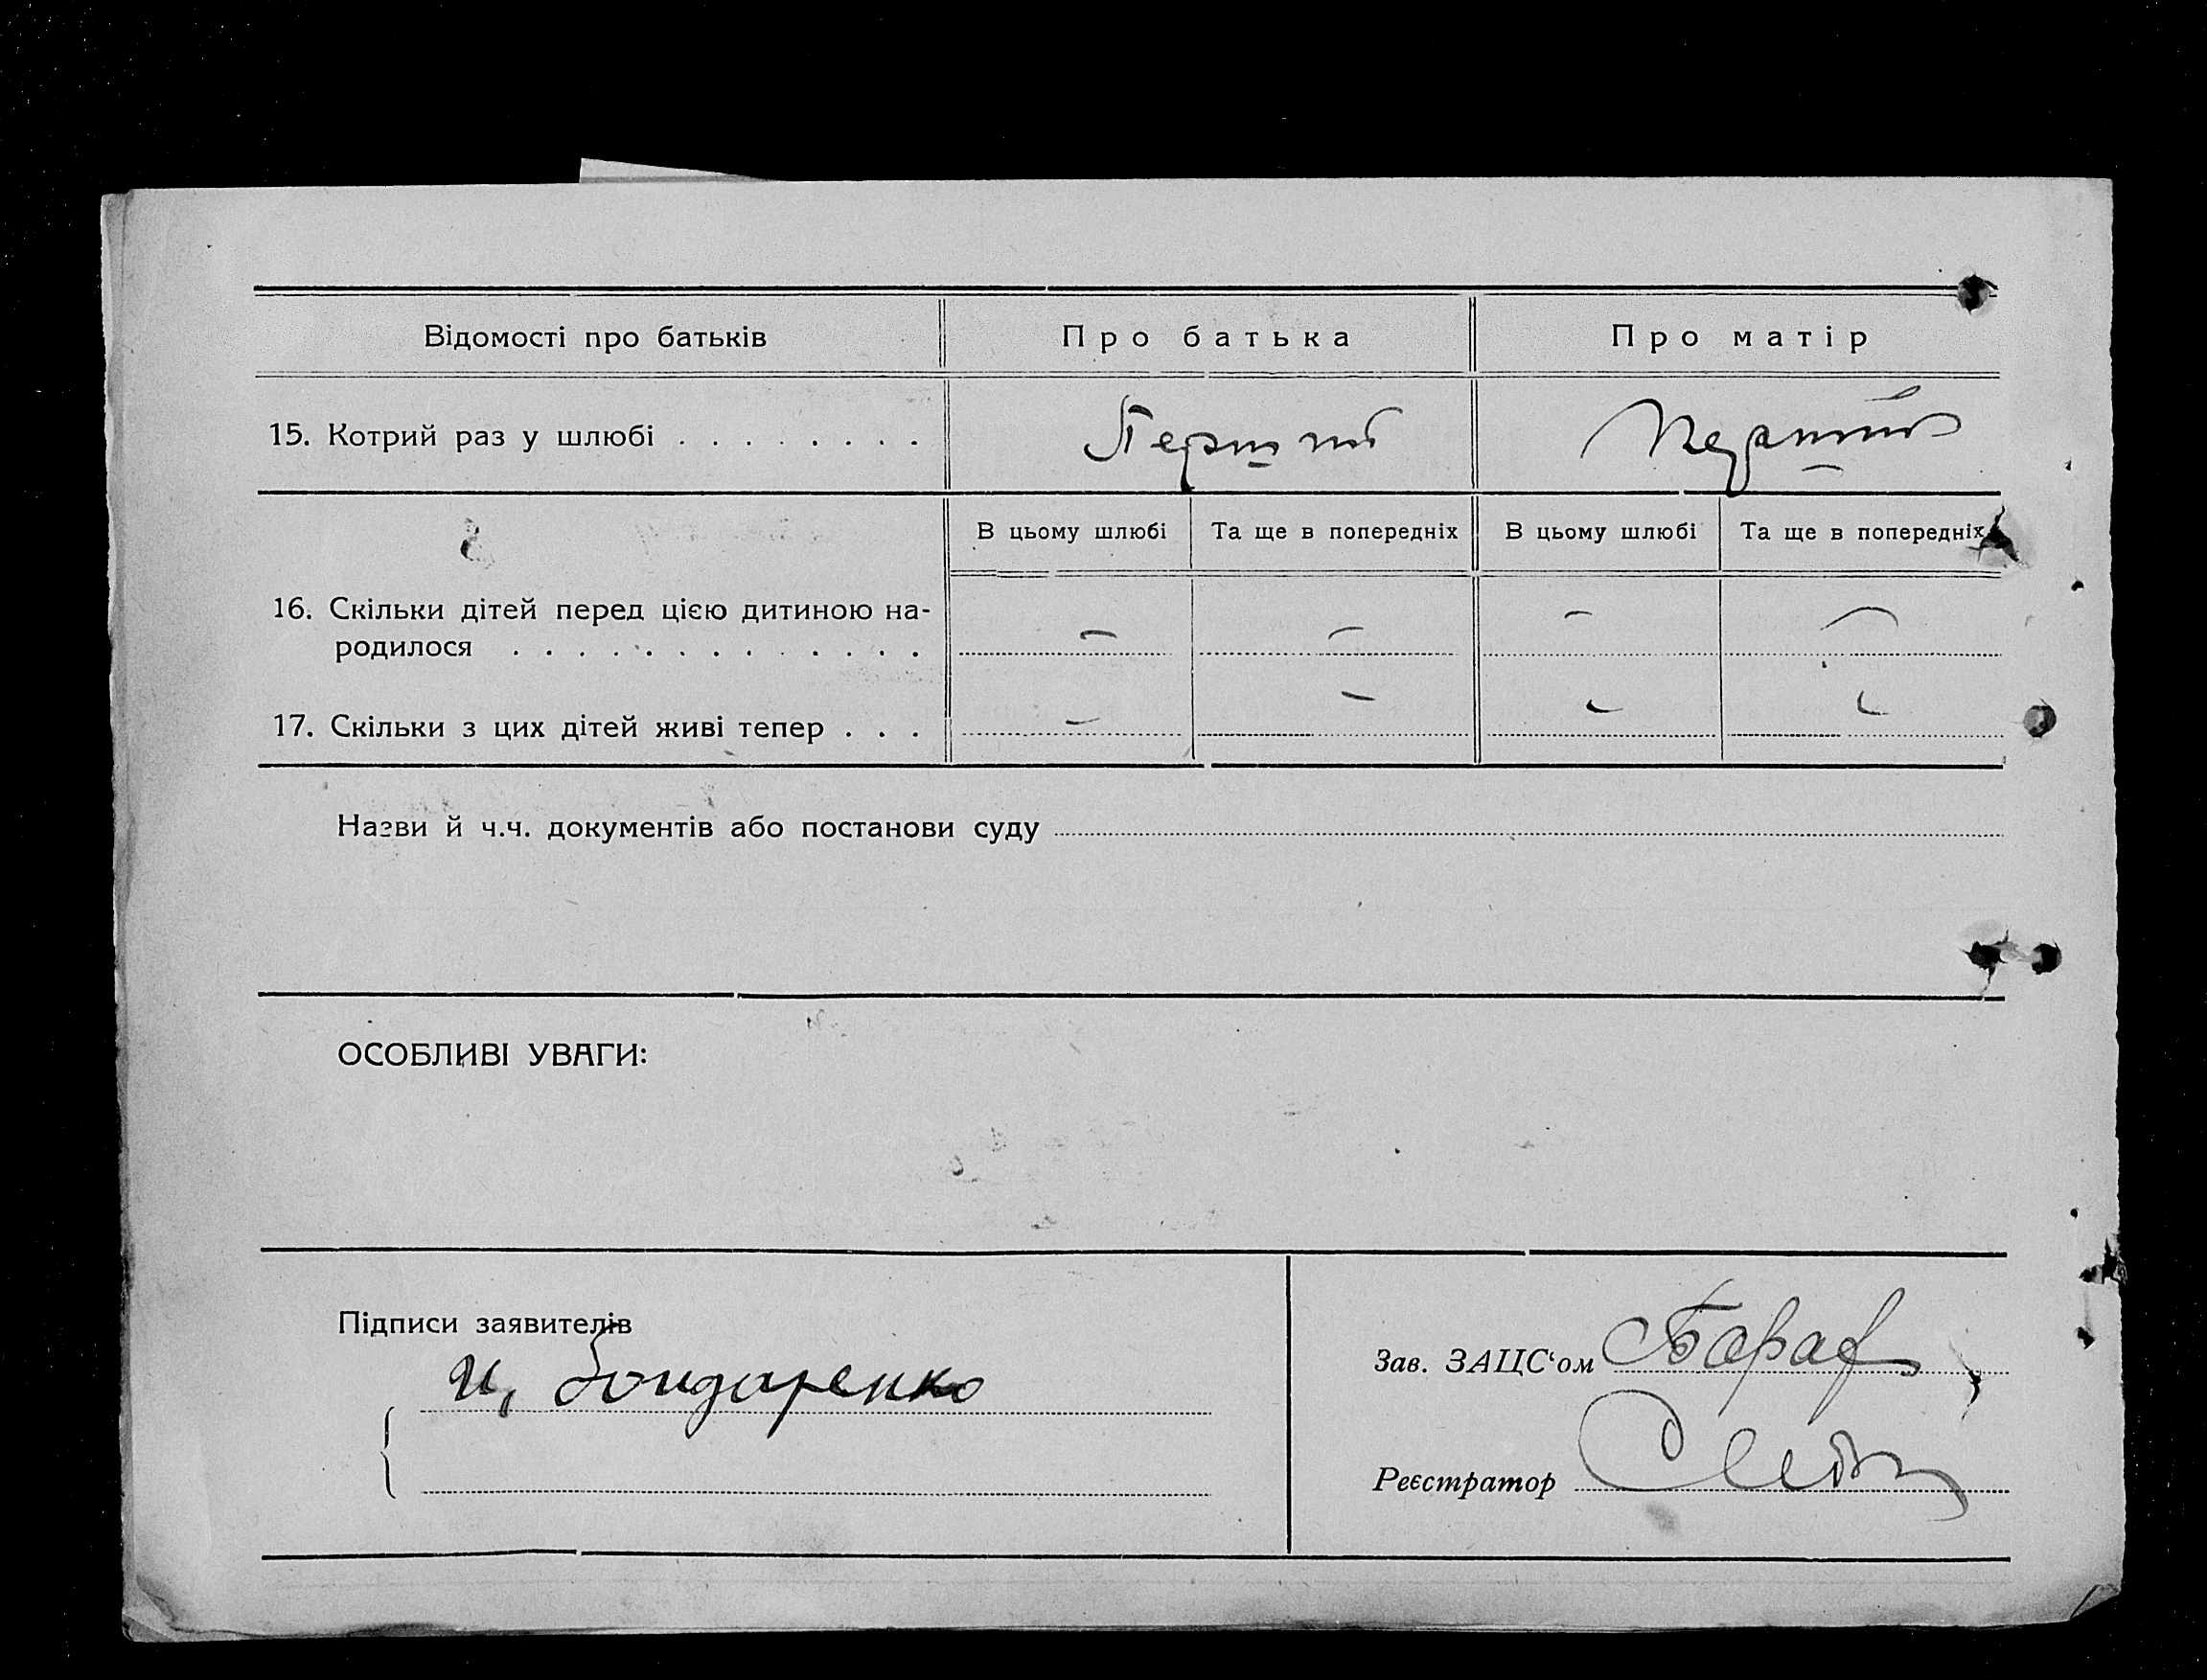 Відомості про батьків Про батька Про матір
15. Котрий раз у шлюбі . . . . . . . . Перший Перший
В цьому шлюбі Та ще в попередніх В цьому шлюбі Та ще в попередніх
16. Скільки дітей перед цією дитиною на-
родилося . . . . . . . . . . . . . — — — —
17. Скільки з цих дітей живі тепер . . . — — — —
Назви й ч.ч. документів або постанови суду
ОСОБЛИВІ УВАГИ:
Підписи заявителів
И, Бондаренко
Зав. ЗАЦС‘ом
Реєстратор